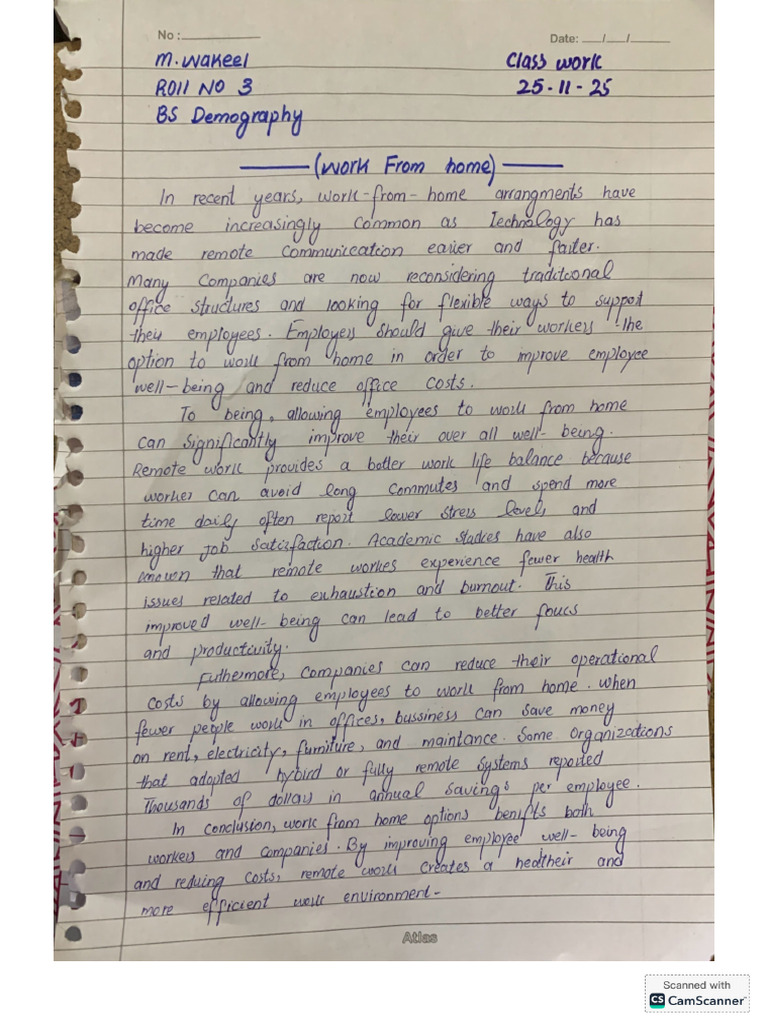 No :
Date: __/__/____
M. Wakeel
Class work
Roll No 3
25-11-25
BS Demography
(Work From home)
In recent years, work-from-home arrangments have
become increasingly common as Technology has
made remote communication easier and faster.
Many Companies are now reconsidering traditional
office structures and looking for flexible ways to support
their employees. Employers should give their workers the
option to work from home in order to improve employee
well-being and reduce office costs.
To being, allowing employees to work from home
can significantly improve their over all well-being.
Remote work provides a better work life balance because
worker can avoid long commutes and spend more
time daily often report lower stress levels and
higher job satisfaction. Academic studies have also
that remote workes experience fewer health
issues related to exhaustion and burnout. This
improved well-being can lead to better foucs
and productivity.
Futhermore, companies can reduce their operational
costs by allowing employees to work from home. when
fewer people work in offices, bussiness can save money
on rent, electricity, furniture, and maintance. Some Organizations
that adopted hybird or fully remote systems reported
Thousands of dollars in annual savings per employee.
In conclusion, work from home options benifts both
workers and companies. By improving employee well-being
and reduing costs, remote work creates a healtheir and
more efficient work environment-
Atlas
Scanned with
CS CamScanner